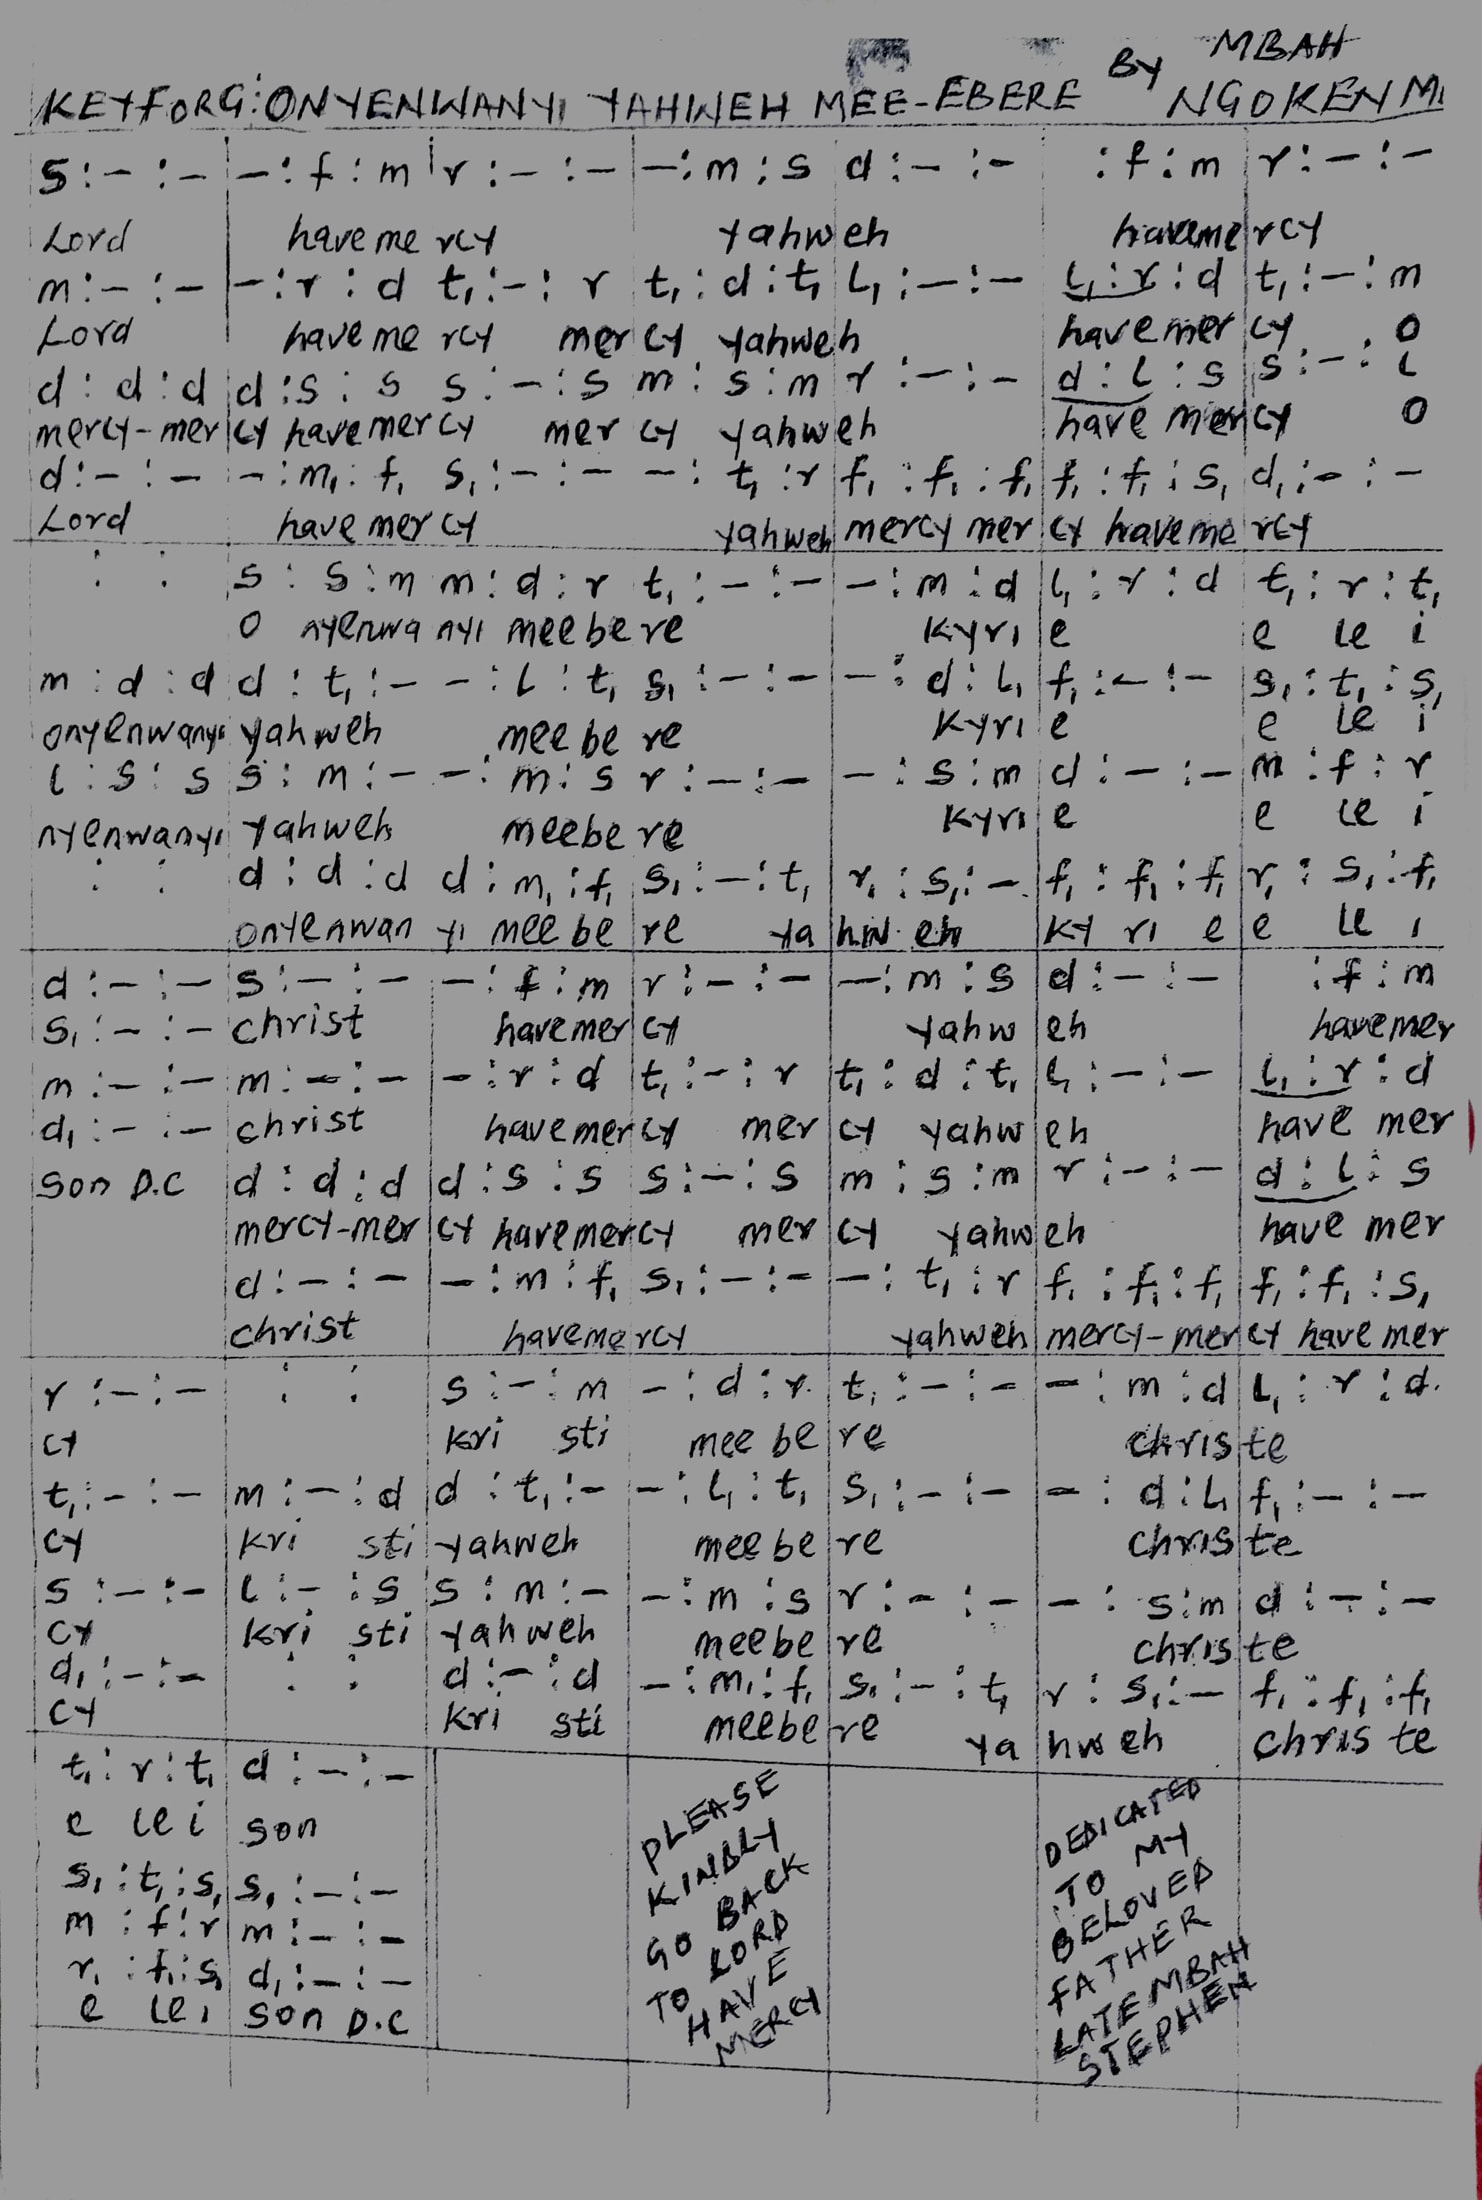 BY MBAH
KEY F OR G: ONYENWANYI YAHWEH MEE-EBERE NGOKEN M,
s:-:- -:f:m r:-:- -:m:s d:-:- :f:m r:-:-
Lord have me rcy Yahweh haveme rcy
m:-:- -:r:d t₁:-:r t₁:d:t₁ L₁:-:- L₁:r:d t₁:-:m
Lord have me rcy mer cy Yahweh have mer cy O
d:d:d d:s:s s:-:s m:s:m r:-:- d:l:s s:-:l
mercy-mer cy have mercy mer cy Yahweh have mercy O
d:-:- -:m₁:f₁ s₁:-:- -:t₁:r f₁:f₁:f₁ f₁:f₁:s₁ d₁:-:-
Lord have mercy Yahweh mercy mer cy haveme rcy
: : s:s:m m:d:r t₁:-:- -:m:d L₁:r:d t₁:r:t₁
O nyenwa nyi meebe re Kyri e e le i
m:d:d d:t₁:- -:l:t₁ s₁:-:- -:d:L₁ f₁:-:- s₁:t₁:s₁
onyenwanyi Yahweh meebe re Kyri e e le i
l:s:s s:m:- -:m:s r:-:- -:s:m d:-:- m:f:r
nyenwanyi Yahweh meebe re Kyri e e le i
: : d:d:d d:m₁:f₁ s₁:-:t₁ r₁:s₁:- f₁:f₁:f₁ r₁:s₁:f₁
onyenwan yi meebe re Ya hweh Ky ri e e le i
d:-:- s:-:- -:f:m r:-:- -:m:s d:-:- :f:m
s₁:-:- christ havemer cy Yahw eh havemer
m:-:- m:-:- -:r:d t₁:-:r t₁:d:t₁ L₁:-:- L₁:r:d
d₁:-:- christ havemercy mer cy Yahw eh have mer
son D.C d:d:d d:s:s s:-:s m:s:m r:-:- d:l:s
mercy-mer cy havemercy mer cy Yahweh have mer
d:-:- -:m:f₁ s₁:-:- -:t₁:r f₁:f₁:f₁ f₁:f₁:s₁
christ havemercy Yahweh mercy-mercy have mer
r:-:- : : s:-:m -:d:r t₁:-:- -:m:d L₁:r:d
cy kri sti meebe re christe
t₁:-:- m:-:d d:t₁:- -:L₁:t₁ s₁:-:- -:d:L₁ f₁:-:-
cy kri sti Yahweh meebe re christe
s:-:- l:-:s s:m:- -:m:s r:-:- -:s:m d:-:-
cy kri sti Yahweh meebe re christe
d₁:-:- : : d:-:d -:m₁:f₁ s₁:-:t₁ r:s₁:- f₁:f₁:f₁
cy kri sti meebe re Ya hweh christe
t₁:r:t₁ d:-:-
e le i son
s₁:t₁:s₁ s₁:-:-
m:f:r m:-:-
r₁:f₁:s₁ d₁:-:-
e le i son D.C
PLEASE
KINDLY
GO BACK
TO LORD
HAVE
MERCY
DEDICATED
TO MY
BELOVED
FATHER
LATE MBAH
STEPHEN